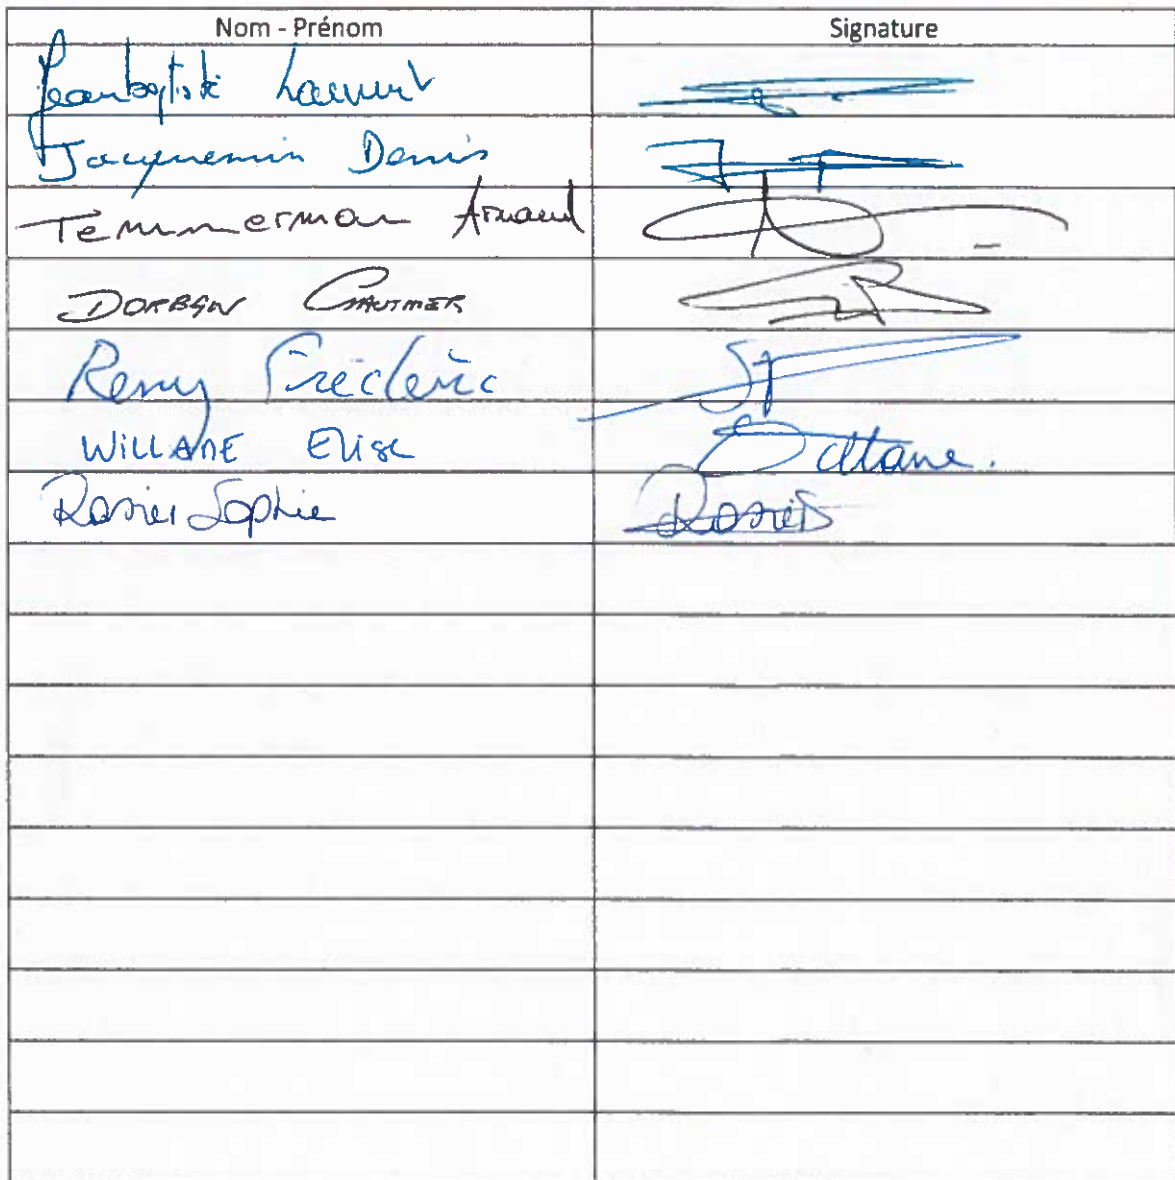 Nom - Prénom Signature
Jeanbaptiste Laurent
Jacquemin Denis
Temmerman Arnaud
DORBAN GAUTHIER
Remy Frédéric
WILLAME Elise
Rosier Sophie RosierS